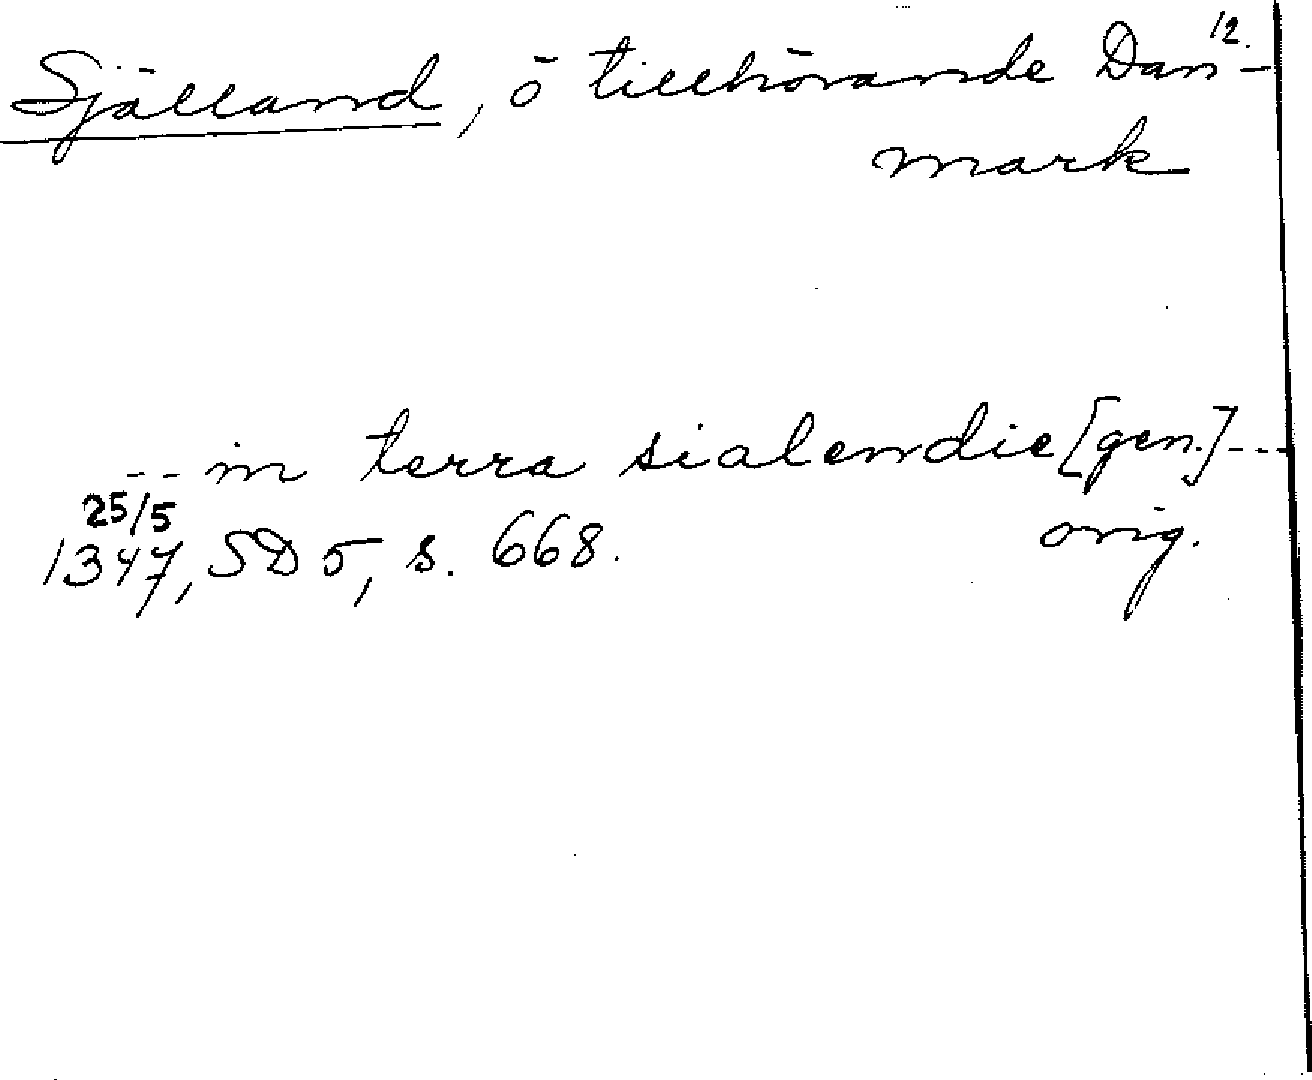 12.
Själland, ö tillhörande Dan-
mark
-- in terra sialendie [gen.] ---
25/5
1347, SD 5, s. 668. orig.